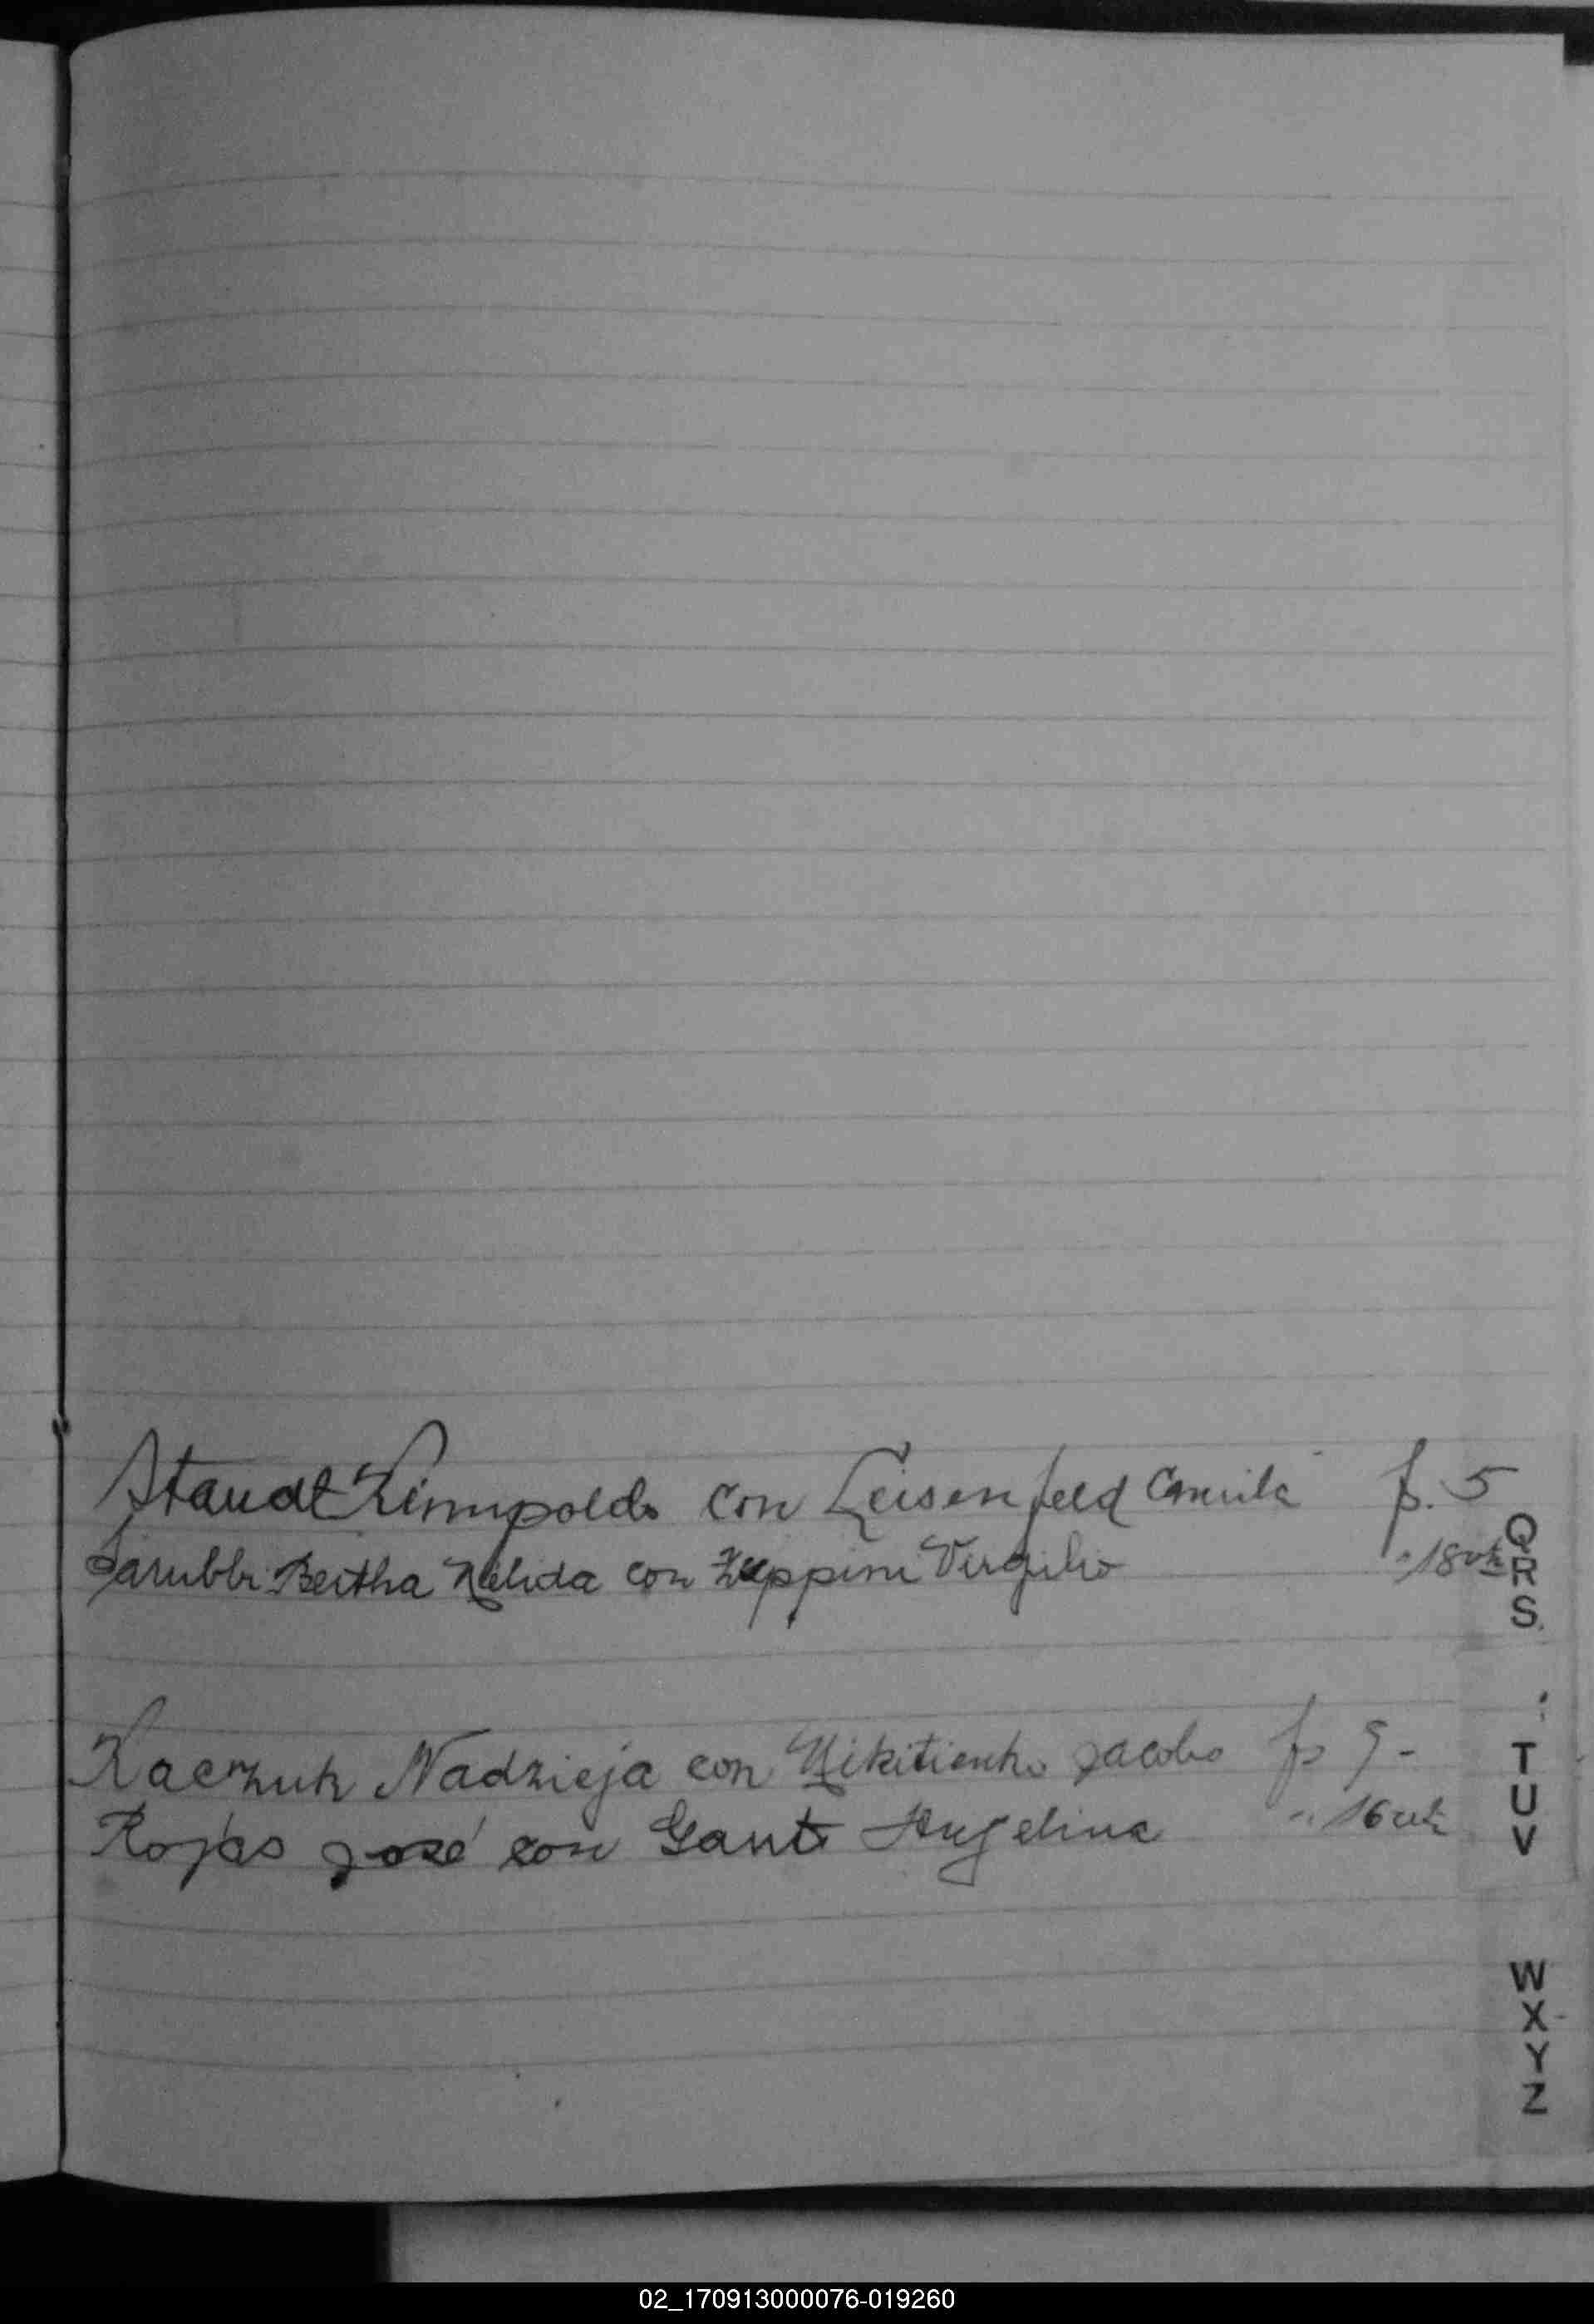 Staudt Limpoldo con Leisenfeld Camila f. 5
Sarubbi Bertha Nélida con Zuppini Virgilio " 18 vta
Q
R
S
Kaczuk Nadzieja con Nikitienko Jacobo fs 9-
Rojas José con Gant Angelina " 16 vta
T
U
V
W
X
Y
Z
02_170913000076-019260